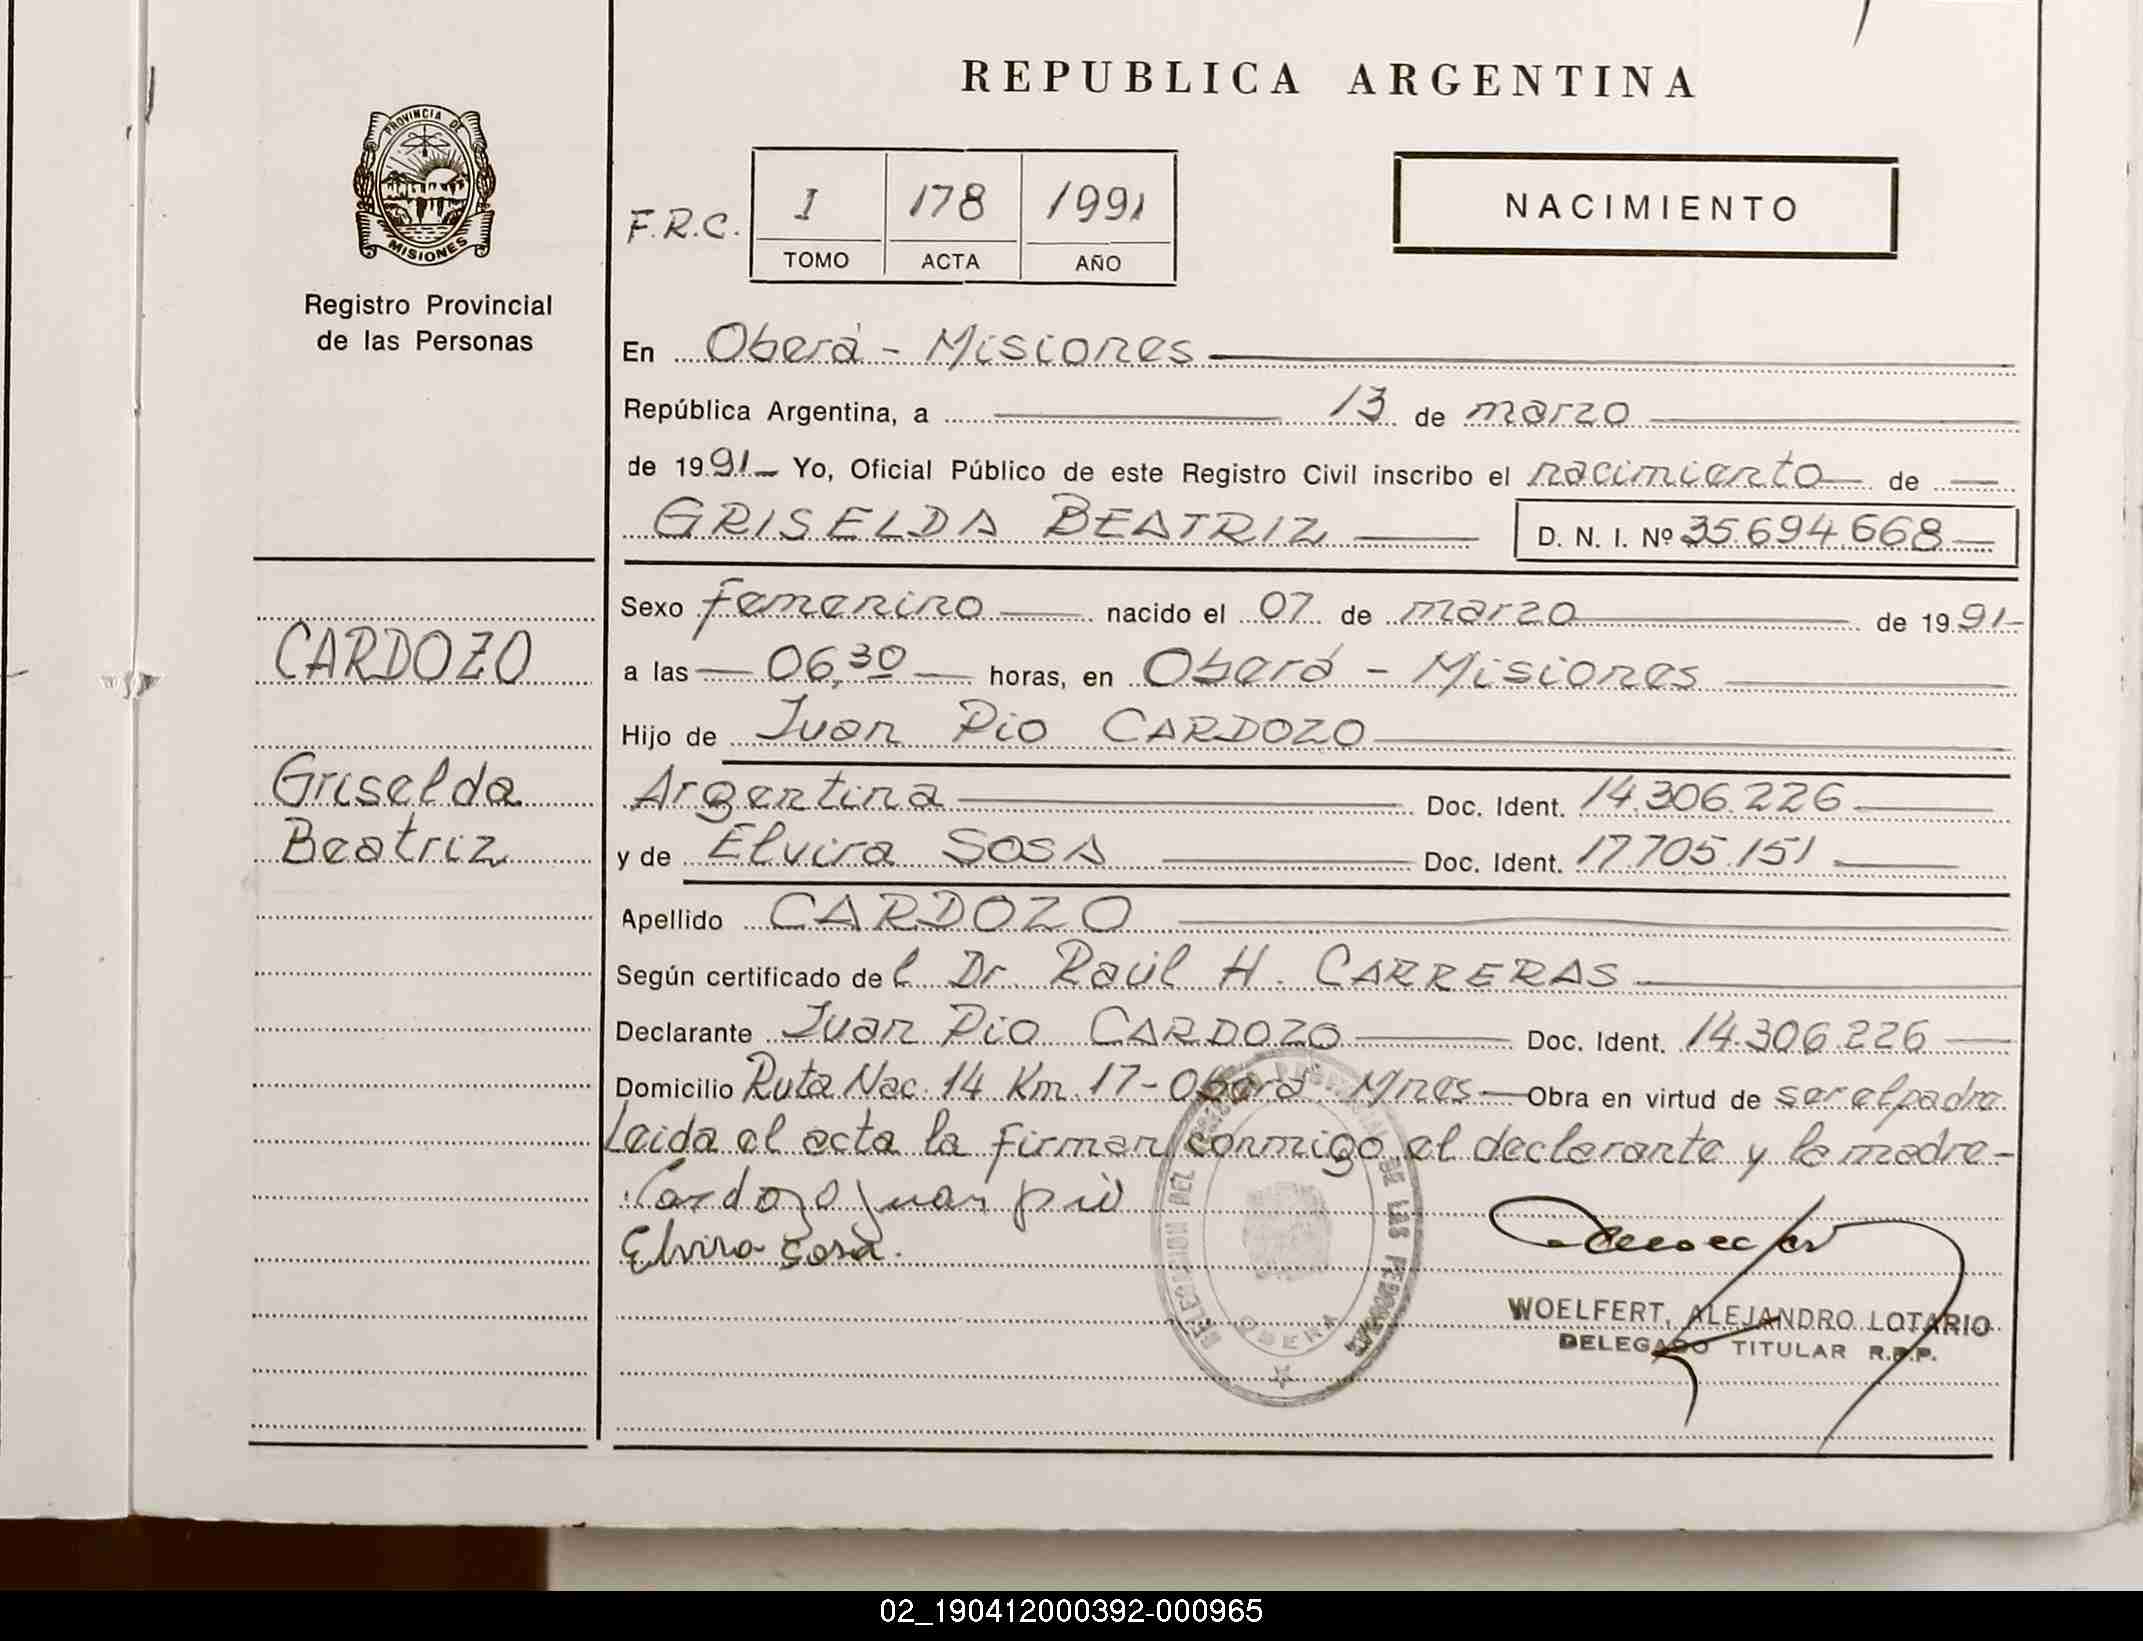 REPUBLICA ARGENTINA
PROVINCIA DE
MISIONES
Registro Provincial
de las Personas
F.R.C.
1 178 1991
TOMO ACTA AÑO
NACIMIENTO
En Oberá - Misiones
República Argentina, a 13 de marzo
de 1991 Yo, Oficial Público de este Registro Civil inscribo el nacimiento de
GRISELDA BEATRIZ D. N. I. Nº 35.694.668
CARDOZO
Griselda
Beatriz
Sexo femenino nacido el 07 de marzo de 1991
a las 06,30 horas, en Oberá - Misiones
Hijo de Juan Pio CARDOZO
Argentina Doc. Ident. 14.306.226
y de Elvira SOSA Doc. Ident. 17.705.151
Apellido CARDOZO
Según certificado del Dr. Raúl H. CARRERAS
Declarante Juan Pio CARDOZO Doc. Ident. 14.306.226
Domicilio Ruta Nac. 14 Km. 17 - Oberá Mnes Obra en virtud de ser el padre
Leida el acta la firman conmigo el declarante y la madre-
Cardozo juan pio
Elvira Sosa.
DELEGACION DEL REGISTRO PROVINCIAL DE LAS PERSONAS
OBERA
WOELFERT, ALEJANDRO LOTARIO
DELEGADO TITULAR R.P.P.
02_190412000392-000965